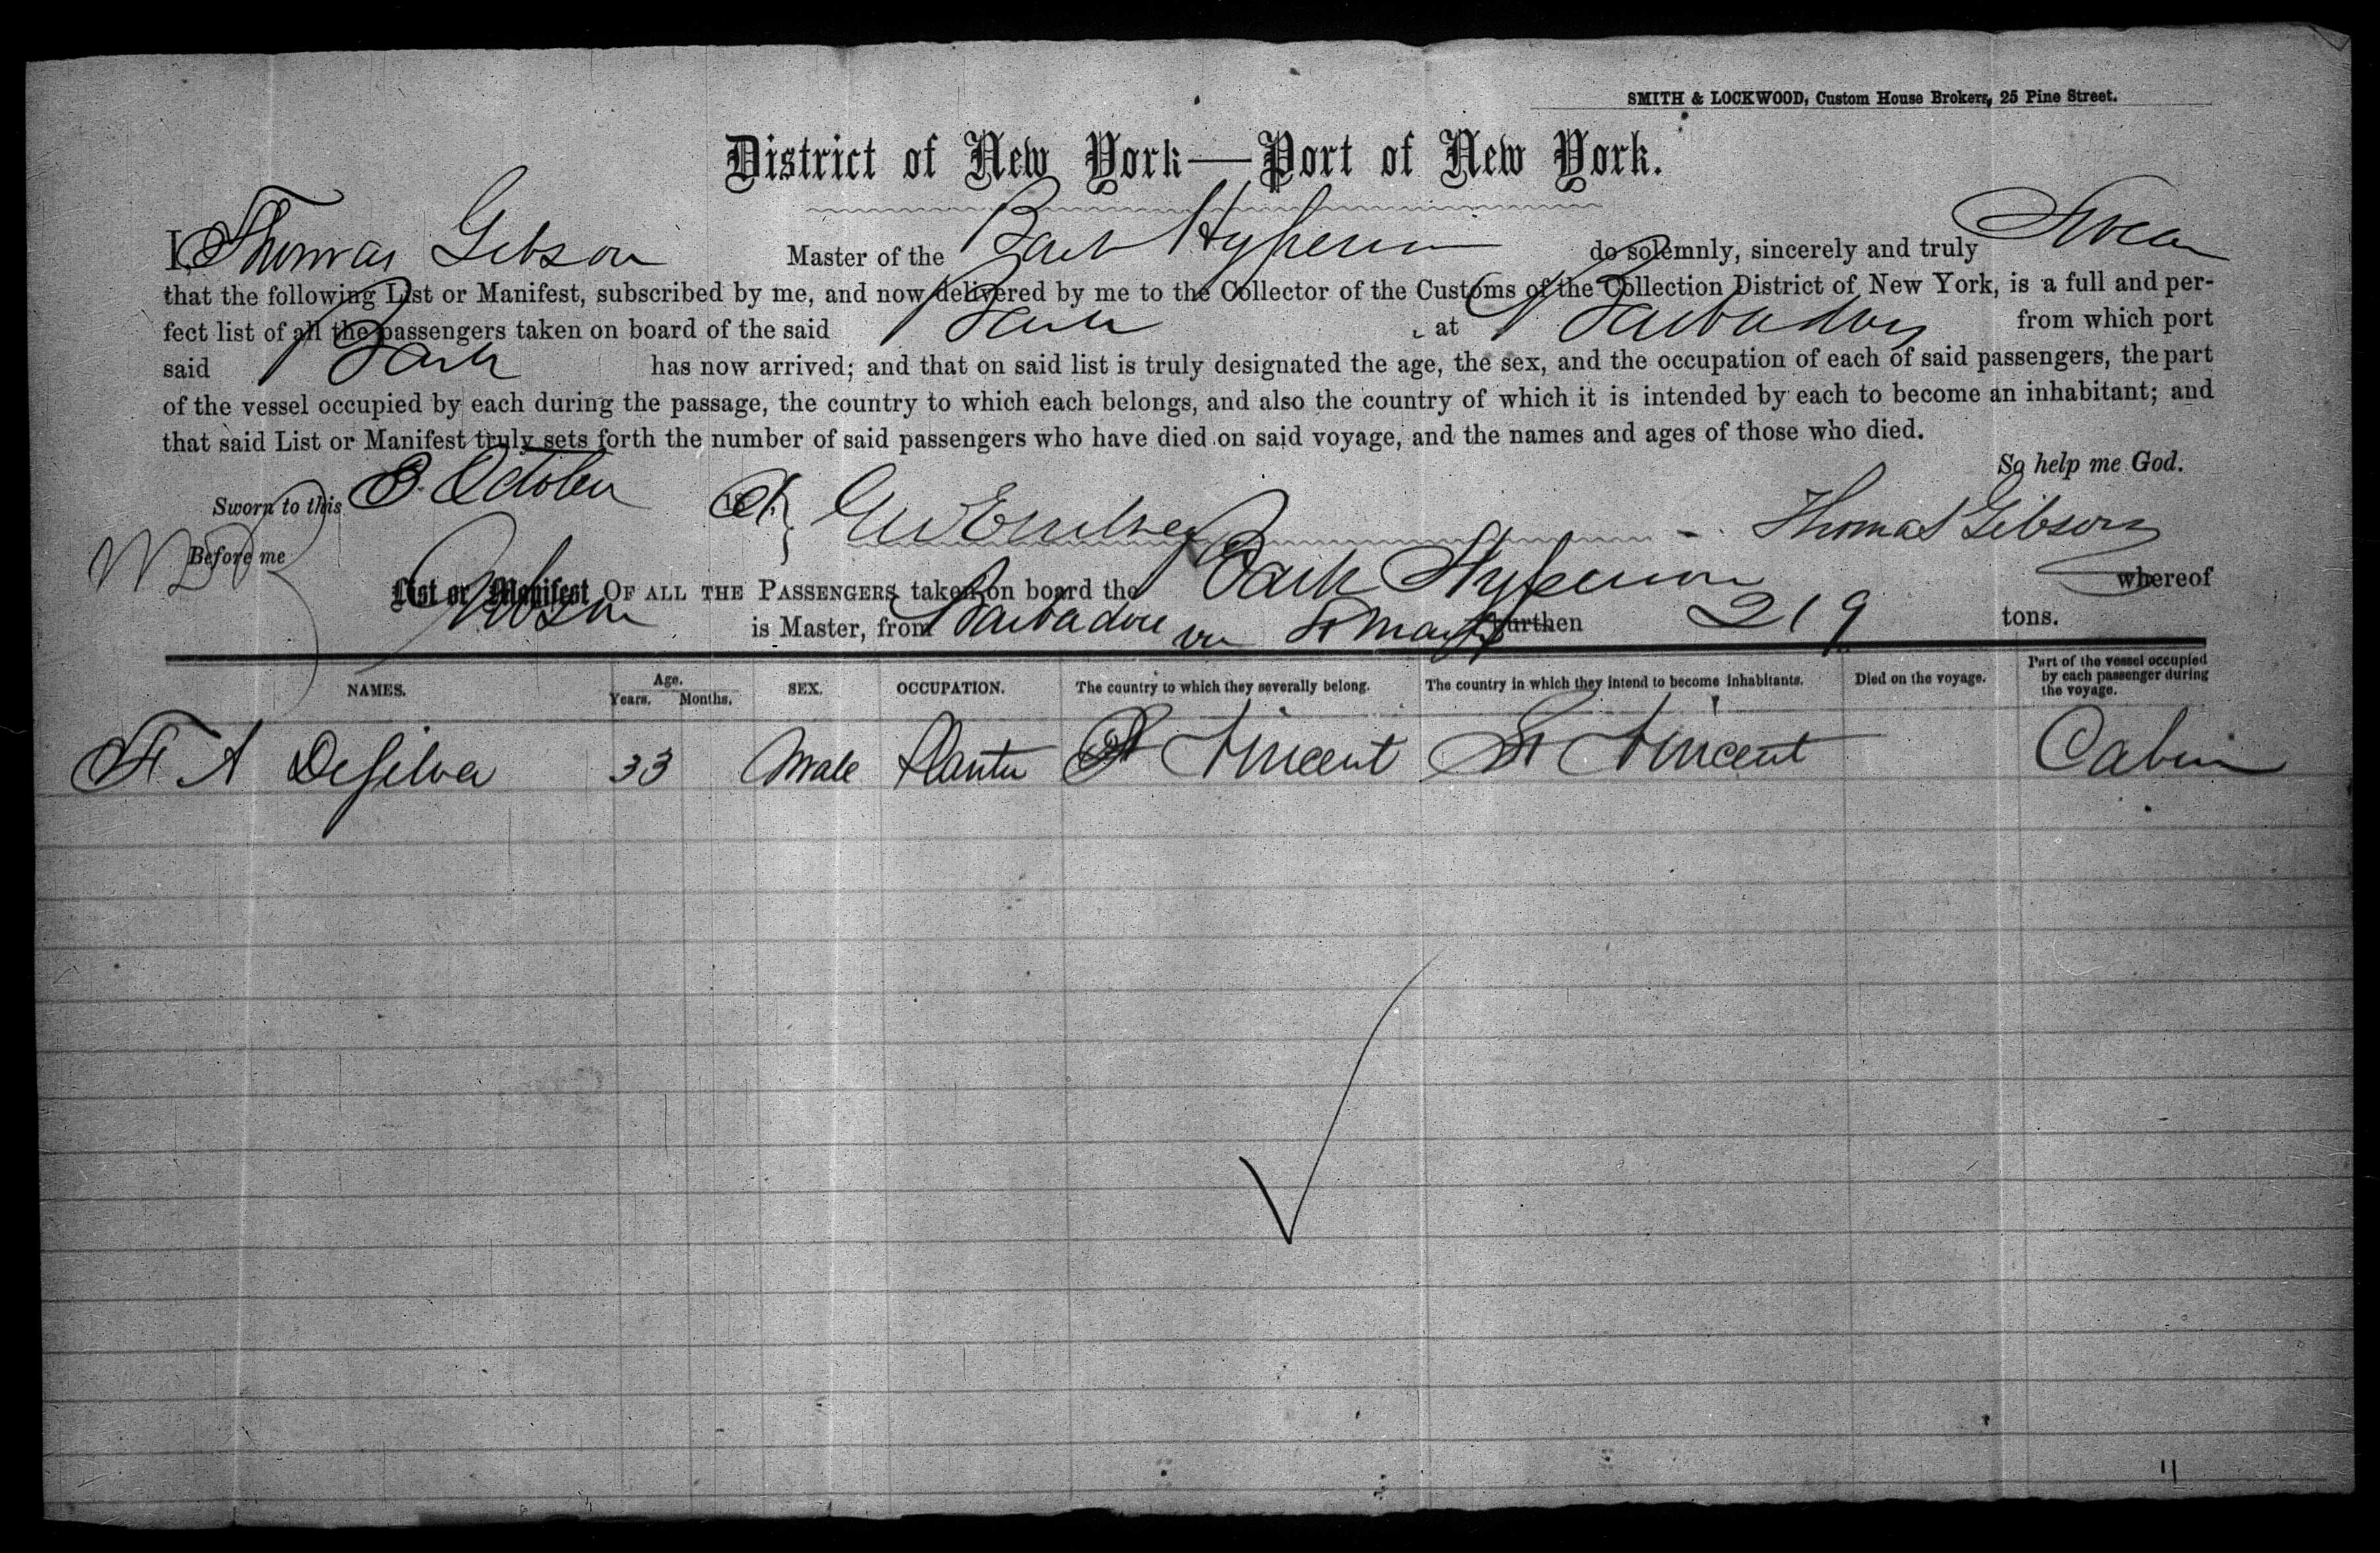 SMITH & LOCKWOOD, Custom House Brokers, 25 Pine Street.
District of New York—Port of New York.
I, Thomas Gibson Master of the Bark Hyperion do solemnly, sincerely and truly Swear
that the following List or Manifest, subscribed by me, and now delivered by me to the Collector of the Customs of the Collection District of New York, is a full and per-
fect list of all the passengers taken on board of the said Bark at Barbadoes from which port
said Bark has now arrived; and that on said list is truly designated the age, the sex, and the occupation of each of said passengers, the part
of the vessel occupied by each during the passage, the country to which each belongs, and also the country of which it is intended by each to become an inhabitant; and
that said List or Manifest truly sets forth the number of said passengers who have died on said voyage, and the names and ages of those who died.
So help me God.
Sworn to this 8 October 18 Thomas Gibson
Before me
List or Manifest OF ALL THE PASSENGERS taken on board the Bark Hyperion whereof
Gibson is Master, from Barbadoes via St Mary burthen 219 tons.
NAMES. Age. Years. Months. SEX. OCCUPATION. The country to which they severally belong. The country in which they intend to become inhabitants. Died on the voyage. Part of the vessel occupied by each passenger during the voyage.
F A DeSilva 33 Male Planter St Vincent St Vincent Cabin